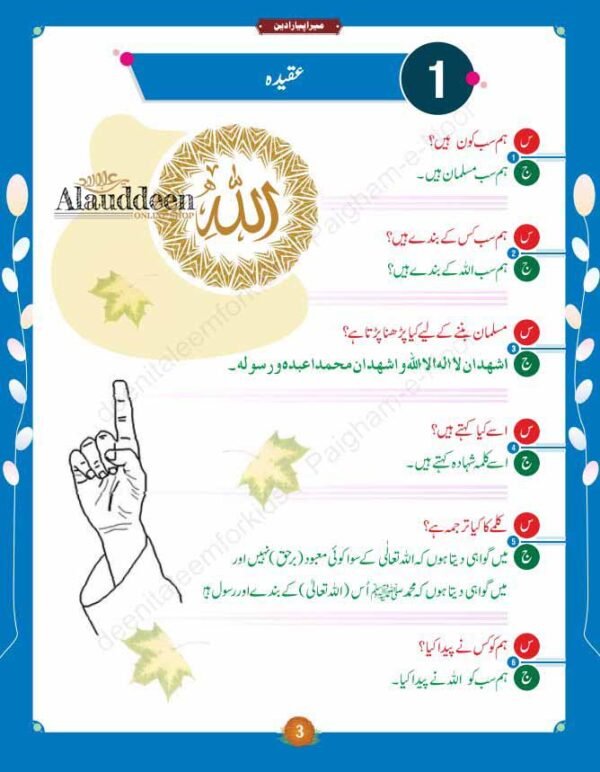 میرا پیارا دین
عقیدہ
1
س
ہم سب کون ہیں؟
1
ج
ہم سب مسلمان ہیں۔
س
ہم سب کس کے بندے ہیں؟
2
ج
ہم سب اللہ کے بندے ہیں؟
س
مسلمان بننے کے لیے کیا پڑھنا پڑتا ہے؟
3
ج
اشھدان لا الہ الا اللہ و اشھدان محمدا عبدہ ورسولہ۔
س
اسے کیا کہتے ہیں؟
4
ج
اسے کلمہ شہادہ کہتے ہیں۔
س
کلمے کا کیا ترجمہ ہے؟
5
ج
میں گواہی دیتا ہوں کہ اللہ تعالٰی کے سوا کوئی معبود (برحق) نہیں اور
میں گواہی دیتا ہوں کہ محمد ﷺ اُس (اللہ تعالیٰ) کے بندے اور رسول ہیں
س
ہم کو کس نے پیدا کیا؟
6
ج
ہم سب کو اللہ نے پیدا کیا۔
اللہ
Alauddeen
ONLINE SHOP
deenitaleemforkids
Paigham-e-
deenitaleemforkids
Paigham-e-
3